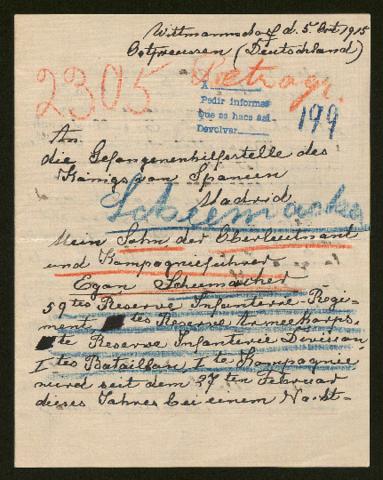 Wittmannsdorf d. 5. Oct. 1915
Ostpreussen (Deutschland)
2305
A
Pedir informes
que se hace así
Devolver
199
An
die Gefangenenhilfsstelle des
Königs von Spanien
Madrid
Schumacher
Mein Sohn der Oberleutnant
und Kompagnieführer
Egon Schumacher
59tes Reserve Infanterie Regi-
ment, tes Reserve Armeekorps,
te Reserve Infanterie Division
I tes Bataillon, I te Kompagnie
wird seit dem 27ten Februar
dieses Jahres bei einem Vorst-